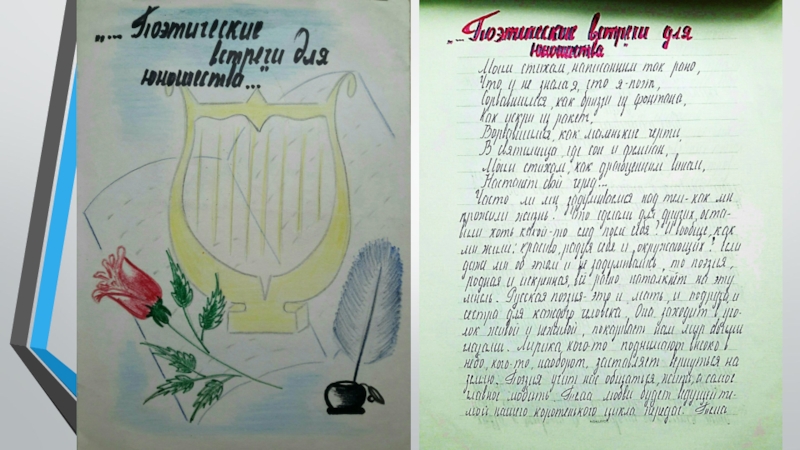 „... Поэтические
встречи для
юношества..."
„... Поэтические встречи для
юношества
Моим стихам, написанным так рано,
Что и не знала я, что я - поэт,
Сорвавшимся, как брызги из фонтана,
Как искры из ракет,
Ворвавшимся, как маленькие черти,
В святилище, где сон и фимиам,
Моим стихам, как драгоценным винам,
Настанет свой черёд!..
Часто ли мы задумываемся над тем - как мы
прожили жизнь? Что сделали для других, оста-
вили хоть какой-то след после себя? И вообще, как
мы живем: красиво, радуя себя и окружающих? Если
даже мы об этом и не задумывались, то поэзия,
родная и искренная, всё равно натолкнёт на эту
мысль. Русская поэзия - это и мать, и подруга, и
сестра для каждого человека. Она заходит в уго-
лок живой и неживой, покажет нам мир своими
глазами. Лирика кого-то поднимает высоко в
небо, кого-то, наоборот, заставляет вернуться на
землю. Поэзия учит нас общаться, жить, и самое
главное любить. Тема любви будет ведущей те-
мой нашего коротенького цикла передач.